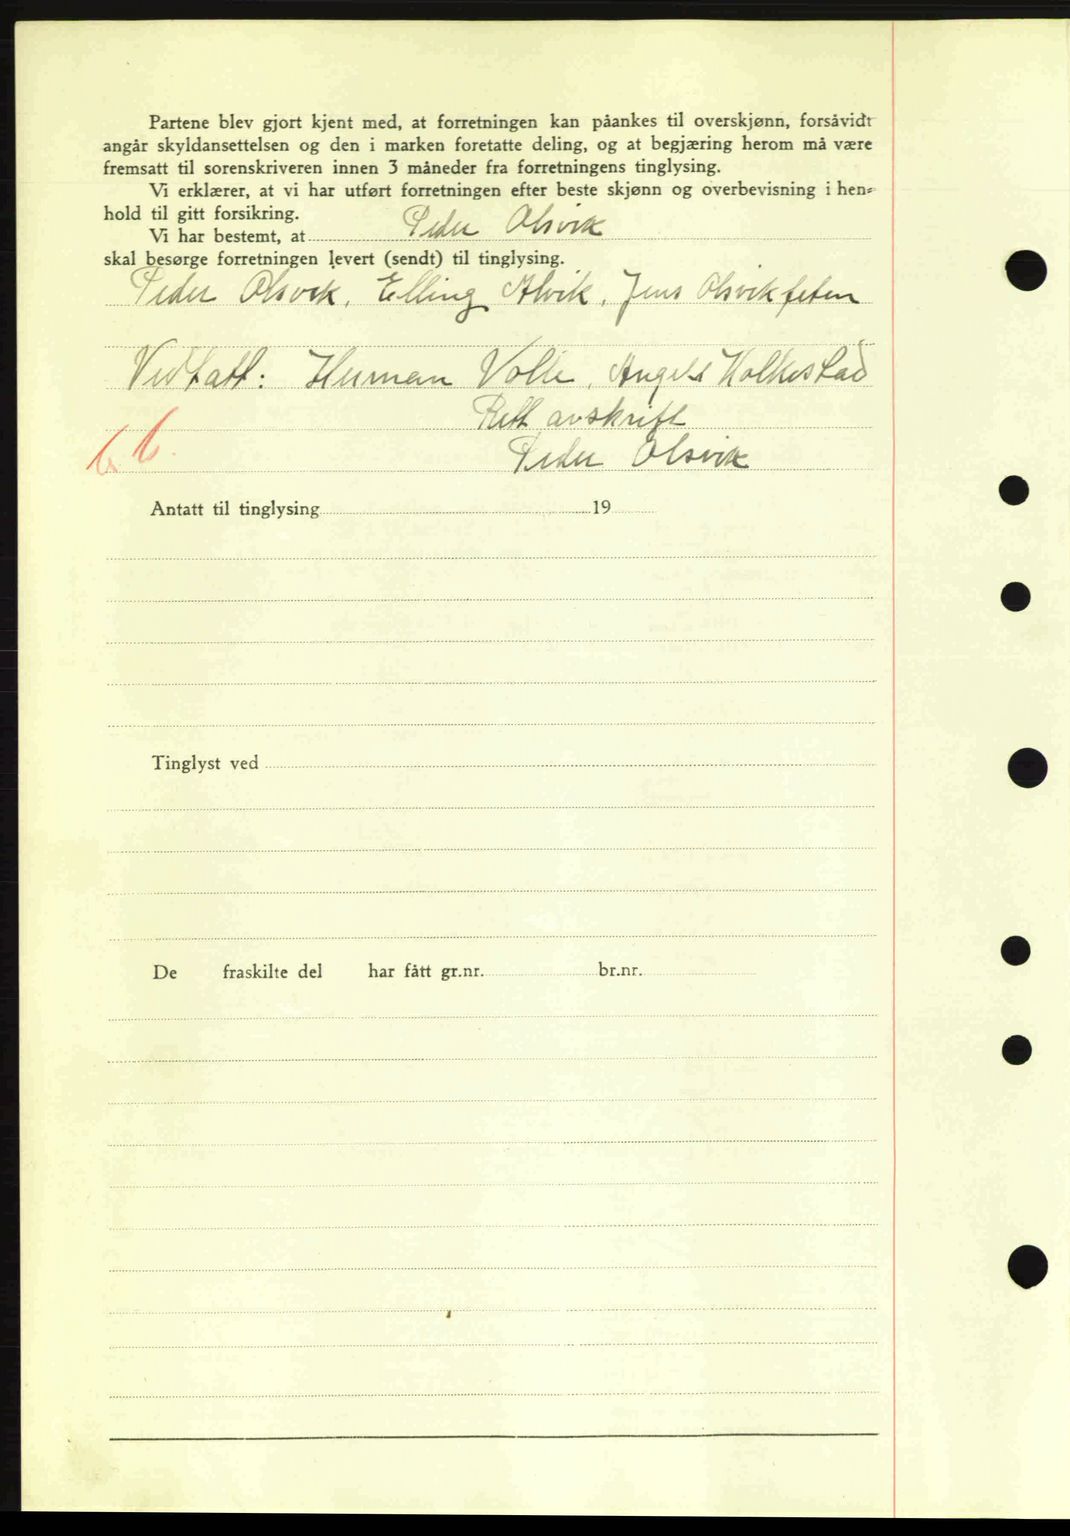 Partene blev gjort kjent med, at forretningen kan påankes til overskjønn, forsåvidt
angår skyldansettelsen og den i marken foretatte deling, og at begjæring herom må være
fremsatt til sorenskriveren innen 3 måneder fra forretningens tinglysing.
Vi erklærer, at vi har utført forretningen efter beste skjønn og overbevisning i hen-
hold til gitt forsikring.
Vi har bestemt, at Peder Olsvik
skal besørge forretningen levert (sendt) til tinglysing.
Peder Olsvik, Elling Alvik, Jens Olsvikfeten
Vedtatt: Herman Volle,
Rett avskrift
Peder Olsvik
Antatt til tinglysing 19
Tinglyst ved
De fraskilte del har fått gr.nr. br.nr.